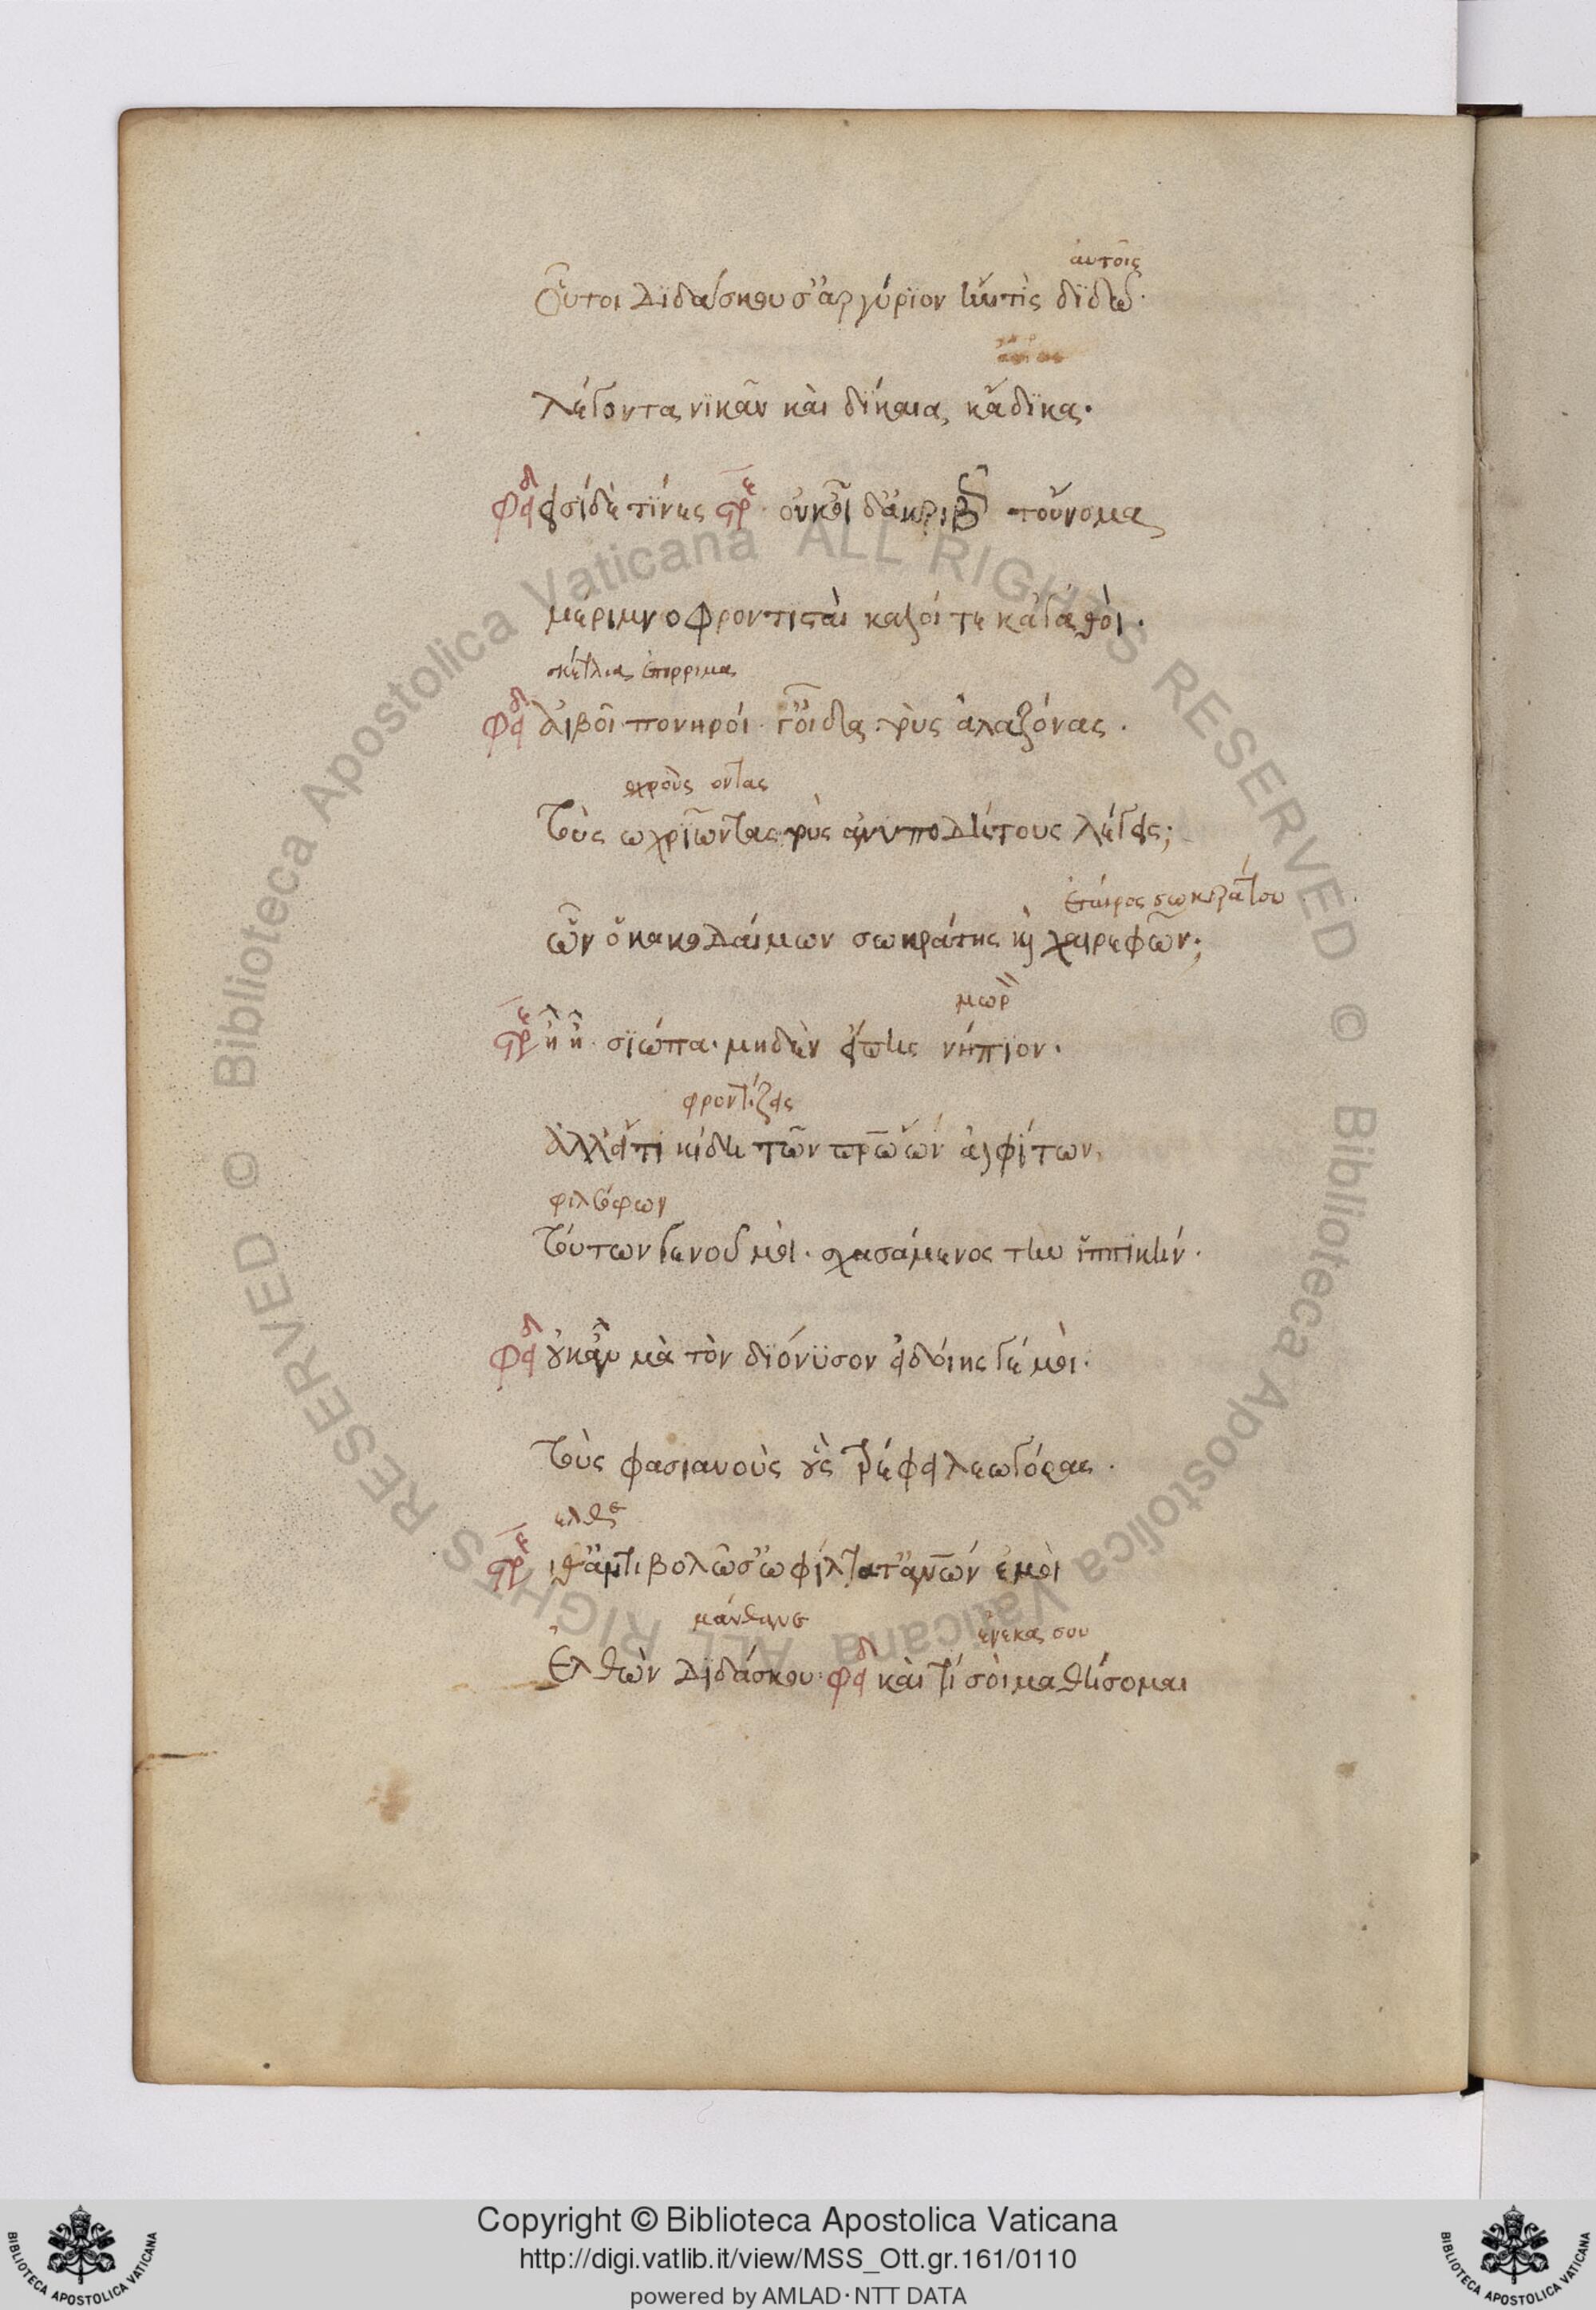 αὐτοῖς
Οὗτοι διδάσκουσ' ἀργύριον ἤν τὶς διδῶ·
λέγοντα νικᾶν καὶ δίκαια κἄδικα·
Φει εἰσὶ δὲ τίνες στρε οὐκ οἶδ' ἀκριβῶς τοὔνομα
μεριμνοφροντισταὶ καλοί τε κἀγαθοὶ·
σχετλιας ἐπιρρημα
Φει αἰβοῖ πονηροί γ' οἶδα τοὺς ἀλαζόνας·
ὠχροὺς οντας
Τοὺς ὠχριῶντας τοὺς ἀνυποδήτους λέγεις;
ἑταίρος σωκράτου
ὧν ὁ κακοδαίμων σωκράτης καὶ χαιρεφῶν;
μωρ
στρε ἢ ἢ σιώπα· μηδὲν εἴπης νήπιον·
φροντίζεις
Ἀλλ' εἴ τι κήδη τῶν πρώων ἀλφίτων
φιλοσόφων
Τούτων γενοῦ μοι· σχασάμενος τὴν ἱππικήν·
Φειδ οὐκ ἂν μὰ τὸν διόνυσον εἰ δοίης γέ μοι·
Τοὺς φασιανοὺς οὓς τρέφει λεωγόρας·
ελθε
στρε ιθ' ἀντιβολῶ σ' ὦ φίλτατ' ἀνῶν ἐμοὶ
μάνθανε
ἕνεκα σου
Ἐλθὼν διδάσκου· Φειδ καὶ τί σοὶ μαθήσομαι
Biblioteca Apostolica Vaticana ALL RIGHTS RESERVED ©
Biblioteca Apostolica Vaticana ALL RIGHTS RESERVED ©
Copyright © Biblioteca Apostolica Vaticana
http://digi.vatlib.it/view/MSS_Ott.gr.161/0110
powered by AMLAD·NTT DATA
BIBLIOTECA APOSTOLICA VATICANA
BIBLIOTECA APOSTOLICA VATICANA